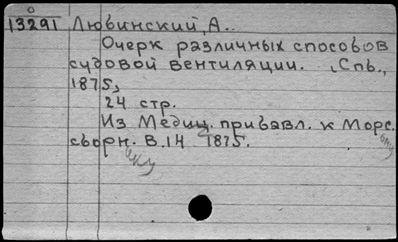 13291 Любинский, А..
Очерк различных способов
судовой вентиляции. Спб.,
1875,
24 стр.
Из Медиц. прибавл. к Морс.
сборн. В. 14 1875.